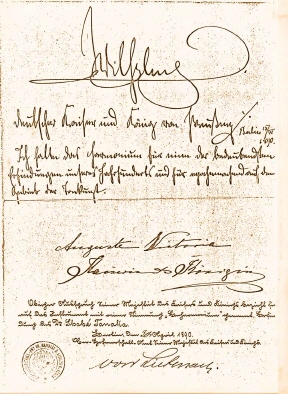 Wilhelm
deutscher Kaiser und König von Preußen
Berlin
1890
Ich halte das Harmonium für eine der bedeutendsten
Erfindungen unseres Jahrhunderts und für epochemachend auf dem
Gebiete der Tonkunst.
Auguste Victoria
Kaiserin Königin
Obiger Ausspruch Seiner Majestät des Kaisers und Königs bezieht sich
auf das Instrument mit reiner Stimmung, genannt, Erfin-
dung des Dr Shohé Tanaka.
Berlin, den April 1890.
Seiner Majestät des Kaisers und Königs
von